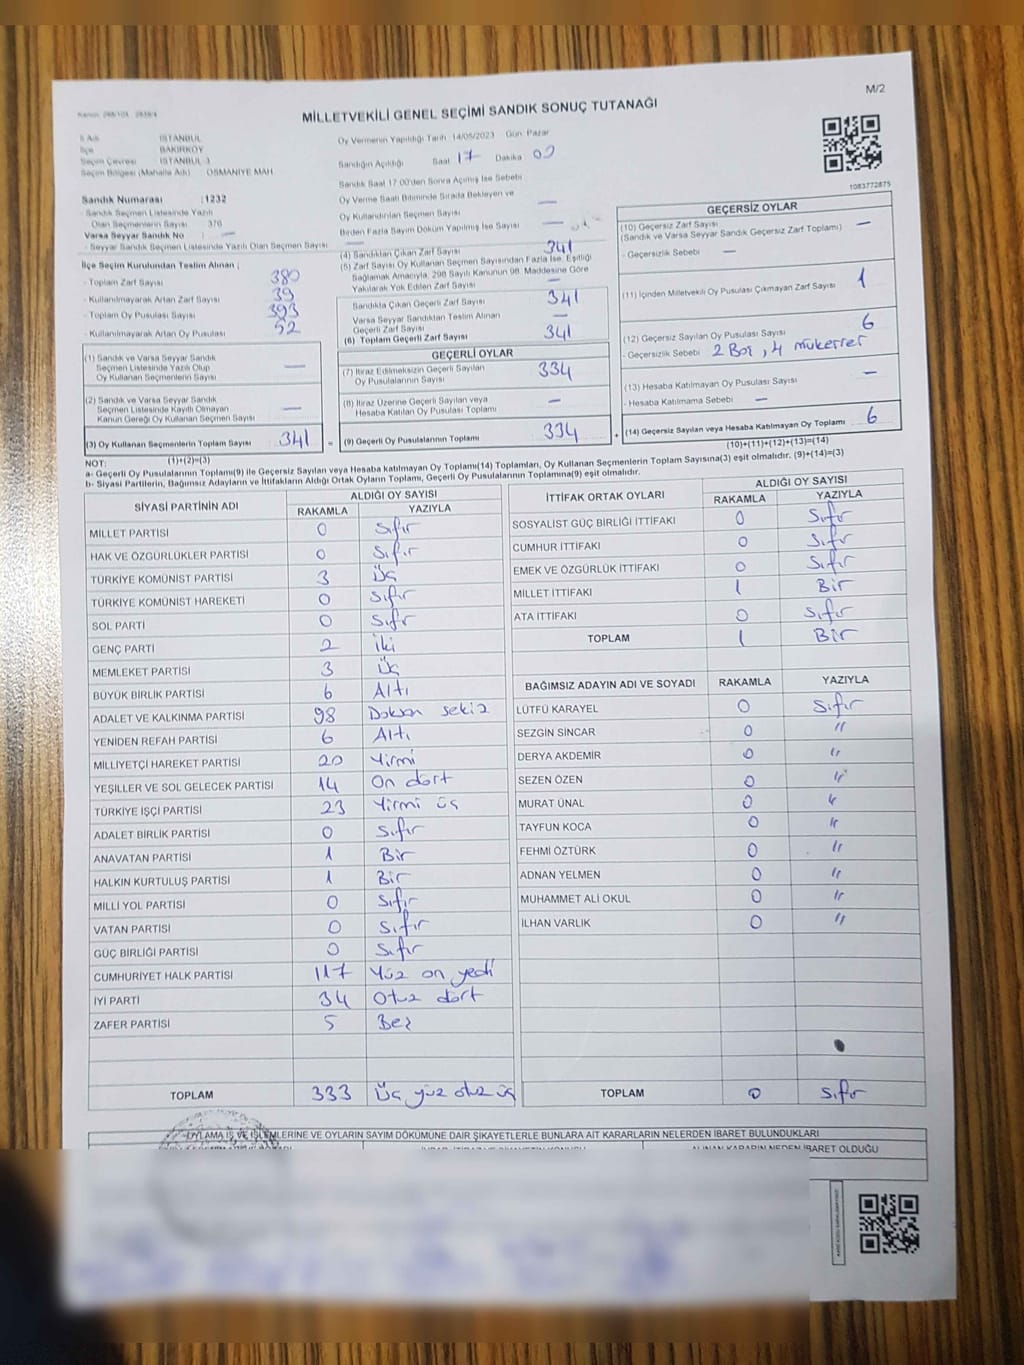 M/2
MİLLETVEKİLİ GENEL SEÇİMİ SANDIK SONUÇ TUTANAĞI
İl Adı : İSTANBUL
İlçe BAKIRKÖY
Seçim Çevresi İSTANBUL 3
Seçim Bölgesi (Mahalle Adı) OSMANİYE MAH.
Oy Vermenin Yapıldığı Tarih 14/05/2023 Gün Pazar
Sandığın Açıldığı Saat 17 Dakika 00
Sandık Saat 17.00'den Sonra Açılmış İse Sebebi
Oy Verme Saati Bitiminde Sırada Bekleyen ve
Oy Kullandırılan Seçmen Sayısı —
Birden Fazla Sayım Döküm Yapılmış İse Sayısı —
1083772875
Sandık Numarası : 1232
- Sandık Seçmen Listesinde Yazılı
Olan Seçmenlerin Sayısı 376
Varsa Seyyar Sandık No : —
- Seyyar Sandık Seçmen Listesinde Yazılı Olan Seçmen Sayısı —
İlçe Seçim Kurulundan Teslim Alınan ;
- Toplam Zarf Sayısı 380
- Kullanılmayarak Artan Zarf Sayısı 39
- Toplam Oy Pusulası Sayısı 393
- Kullanılmayarak Artan Oy Pusulası 52
(1) Sandık ve Varsa Seyyar Sandık
Seçmen Listesinde Yazılı Olup
Oy Kullanan Seçmenlerin Sayısı —
(2) Sandık ve Varsa Seyyar Sandık
Seçmen Listesinde Kayıtlı Olmayan
Kanun Gereği Oy Kullanan Seçmen Sayısı —
(3) Oy Kullanan Seçmenlerin Toplam Sayısı 341 =
(1)+(2)=(3)
(4) Sandıktan Çıkan Zarf Sayısı 341
(5) Zarf Sayısı Oy Kullanan Seçmen Sayısından Fazla İse, Eşitliği
Sağlamak Amacıyla, 298 Sayılı Kanunun 98. Maddesine Göre
Yakılarak Yok Edilen Zarf Sayısı —
Sandıkta Çıkan Geçerli Zarf Sayısı 341
Varsa Seyyar Sandıktan Teslim Alınan
Geçerli Zarf Sayısı —
(6) Toplam Geçerli Zarf Sayısı 341
GEÇERLİ OYLAR
(7) İtiraz Edilmeksizin Geçerli Sayılan
Oy Pusulalarının Sayısı 334
(8) İtiraz Üzerine Geçerli Sayılan veya
Hesaba Katılan Oy Pusulası Toplamı —
(9) Geçerli Oy Pusulalarının Toplamı 334 +
GEÇERSİZ OYLAR
(10) Geçersiz Zarf Sayısı —
(Sandık ve Varsa Seyyar Sandık Geçersiz Zarf Toplamı)
- Geçersizlik Sebebi —
(11) İçinden Milletvekili Oy Pusulası Çıkmayan Zarf Sayısı 1
(12) Geçersiz Sayılan Oy Pusulası Sayısı 6
- Geçersizlik Sebebi 2 Boş, 4 mükerrer
(13) Hesaba Katılmayan Oy Pusulası Sayısı —
- Hesaba Katılmama Sebebi —
(14) Geçersiz Sayılan veya Hesaba Katılmayan Oy Toplamı 6
(10)+(11)+(12)+(13)=(14)
NOT:
a- Geçerli Oy Pusulalarının Toplamı(9) ile Geçersiz Sayılan veya Hesaba katılmayan Oy Toplamı(14) Toplamları, Oy Kullanan Seçmenlerin Toplam Sayısına(3) eşit olmalıdır. (9)+(14)=(3)
b- Siyasi Partilerin, Bağımsız Adayların ve İttifakların Aldığı Ortak Oyların Toplamı, Geçerli Oy Pusulalarının Toplamına(9) eşit olmalıdır.
SİYASİ PARTİNİN ADI ALDIĞI OY SAYISI
RAKAMLA YAZIYLA
MİLLET PARTİSİ 0 Sıfır
HAK VE ÖZGÜRLÜKLER PARTİSİ 0 Sıfır
TÜRKİYE KOMÜNİST PARTİSİ 3 Üç
TÜRKİYE KOMÜNİST HAREKETİ 0 Sıfır
SOL PARTİ 0 Sıfır
GENÇ PARTİ 2 İki
MEMLEKET PARTİSİ 3 Üç
BÜYÜK BİRLİK PARTİSİ 6 Altı
ADALET VE KALKINMA PARTİSİ 98 Doksan sekiz
YENİDEN REFAH PARTİSİ 6 Altı
MİLLİYETÇİ HAREKET PARTİSİ 20 Yirmi
YEŞİLLER VE SOL GELECEK PARTİSİ 14 On dört
TÜRKİYE İŞÇİ PARTİSİ 23 Yirmi üç
ADALET BİRLİK PARTİSİ 0 Sıfır
ANAVATAN PARTİSİ 1 Bir
HALKIN KURTULUŞ PARTİSİ 1 Bir
MİLLİ YOL PARTİSİ 0 Sıfır
VATAN PARTİSİ 0 Sıfır
GÜÇ BİRLİĞİ PARTİSİ 0 Sıfır
CUMHURİYET HALK PARTİSİ 117 Yüz on yedi
İYİ PARTİ 34 Otuz dört
ZAFER PARTİSİ 5 Beş
TOPLAM 333 Üç yüz otuz üç
İTTİFAK ORTAK OYLARI ALDIĞI OY SAYISI
RAKAMLA YAZIYLA
SOSYALİST GÜÇ BİRLİĞİ İTTİFAKI 0 Sıfır
CUMHUR İTTİFAKI 0 Sıfır
EMEK VE ÖZGÜRLÜK İTTİFAKI 0 Sıfır
MİLLET İTTİFAKI 1 Bir
ATA İTTİFAKI 0 Sıfır
TOPLAM 1 Bir
BAĞIMSIZ ADAYIN ADI VE SOYADI RAKAMLA YAZIYLA
LÜTFÜ KARAYEL 0 Sıfır
SEZGİN SİNCAR 0 "
DERYA AKDEMİR 0 "
SEZEN ÖZEN 0 "
MURAT ÜNAL 0 "
TAYFUN KOCA 0 "
FEHMİ ÖZTÜRK 0 "
ADNAN YELMEN 0 "
MUHAMMET ALİ OKUL 0 "
İLHAN VARLIK 0 "
TOPLAM 0 Sıfır
OYLAMA İŞ VE İŞLEMLERİNE VE OYLARIN SAYIM DÖKÜMÜNE DAİR ŞİKAYETLERLE BUNLARA AİT KARARLARIN NELERDEN İBARET BULUNDUKLARI
ALINAN KARARIN NEDEN İBARET OLDUĞU